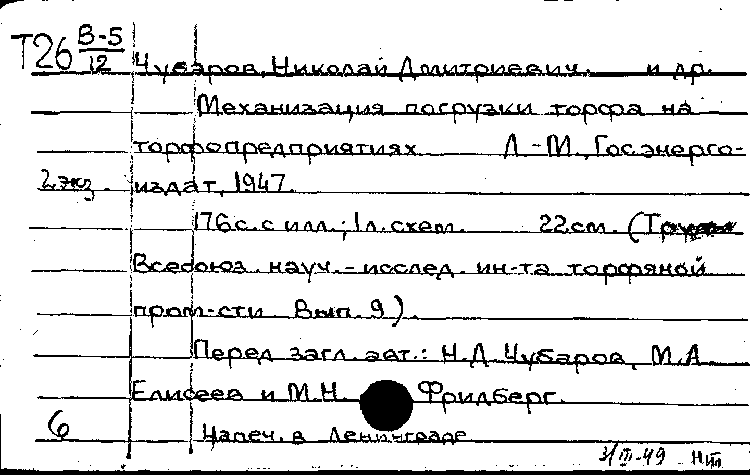 Т26 В-5/12
Чубаров, Николай Дмитриевич. и др.
Механизация погрузки торфа на
торфопредприятиях Л.-М., Госэнерго-
2 экз. издат, 1947.
176 с. с илл.; 1 л. схем. 22 см. (Труды
Всесоюз. науч.-исслед. ин-та торфяной
пром-сти Вып. 9).
Перед загл. авт.: Н.Д. Чубаров, М.А.
Елисеев и М.Н. Фридберг.
6 Напеч. в Ленинграде
3/III-49